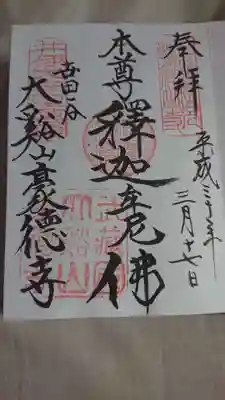 奉拝
平成三十年
三月十七日
本尊釋迦牟尼佛
世田谷
大谿山豪徳寺